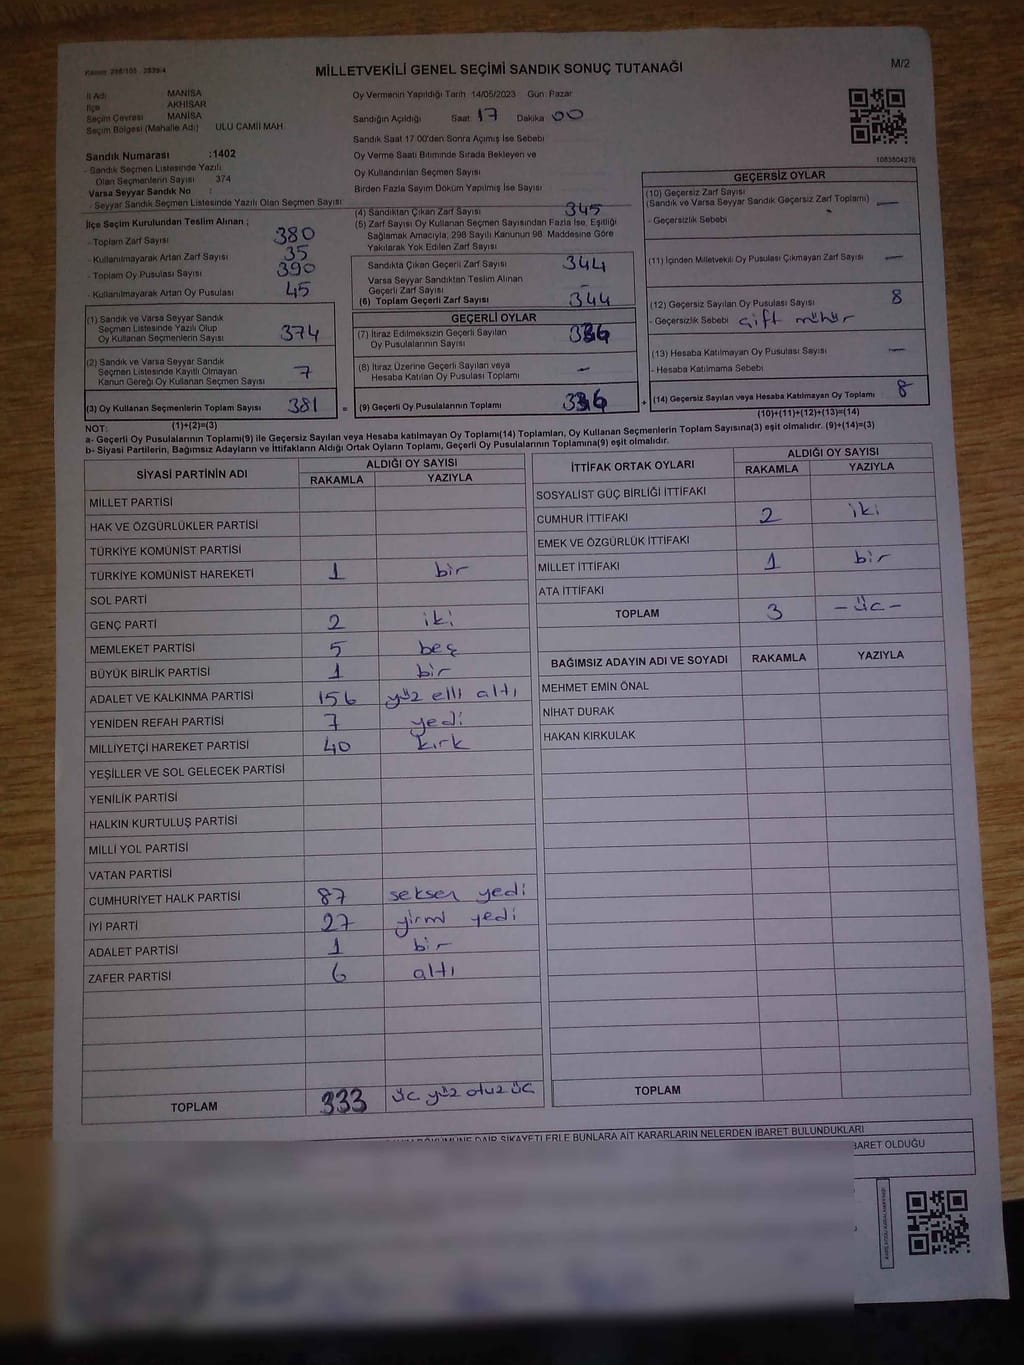 Kanun: 298/105 - 2839/4
MİLLETVEKİLİ GENEL SEÇİMİ SANDIK SONUÇ TUTANAĞI
M/2
İl Adı MANİSA
İlçe AKHİSAR
Seçim Çevresi MANİSA
Seçim Bölgesi (Mahalle Adı) ULU CAMİİ MAH.
Sandık Numarası :1402
- Sandık Seçmen Listesinde Yazılı
Olan Seçmenlerin Sayısı : 374
Varsa Seyyar Sandık No :
- Seyyar Sandık Seçmen Listesinde Yazılı Olan Seçmen Sayısı
Oy Vermenin Yapıldığı Tarih 14/05/2023 Gün: Pazar
Sandığın Açıldığı Saat: 17 Dakika 00
Sandık Saat 17:00'den Sonra Açımış İse Sebebi
Oy Verme Saati Bitiminde Sırada Bekleyen ve
Oy Kullandırılan Seçmen Sayısı
Birden Fazla Sayım Döküm Yapılmış İse Sayısı
1083804276
İlçe Seçim Kurulundan Teslim Alınan ;
- Toplam Zarf Sayısı 380
- Kullanılmayarak Artan Zarf Sayısı 35
- Toplam Oy Pusulası Sayısı 390
- Kullanılmayarak Artan Oy Pusulası 45
(1) Sandık ve Varsa Seyyar Sandık
Seçmen Listesinde Yazılı Olup
Oy Kullanan Seçmenlerin Sayısı 374
(2) Sandık ve Varsa Seyyar Sandık
Seçmen Listesinde Kayıtlı Olmayan
Kanun Gereği Oy Kullanan Seçmen Sayısı 7
(3) Oy Kullanan Seçmenlerin Toplam Sayısı 381 =
(1)+(2)=(3)
(4) Sandıktan Çıkan Zarf Sayısı 345
(5) Zarf Sayısı Oy Kullanan Seçmen Sayısından Fazla İse, Eşitliği
Sağlamak Amacıyla, 298 Sayılı Kanunun 98. Maddesine Göre
Yakılarak Yok Edilen Zarf Sayısı -
Sandıkta Çıkan Geçerli Zarf Sayısı 344
Varsa Seyyar Sandıktan Teslim Alınan
Geçerli Zarf Sayısı -
(6) Toplam Geçerli Zarf Sayısı 344
GEÇERLİ OYLAR
(7) İtiraz Edilmeksizin Geçerli Sayılan
Oy Pusulalarının Sayısı 336
(8) İtiraz Üzerine Geçerli Sayılan veya
Hesaba Katılan Oy Pusulası Toplamı -
(9) Geçerli Oy Pusulalarının Toplamı 336 +
GEÇERSİZ OYLAR
(10) Geçersiz Zarf Sayısı
(Sandık ve Varsa Seyyar Sandık Geçersiz Zarf Toplamı) -
- Geçersizlik Sebebi
(11) İçinden Milletvekili Oy Pusulası Çıkmayan Zarf Sayısı -
(12) Geçersiz Sayılan Oy Pusulası Sayısı 8
- Geçersizlik Sebebi çift mühür
(13) Hesaba Katılmayan Oy Pusulası Sayısı -
- Hesaba Katılmama Sebebi
(14) Geçersiz Sayılan veya Hesaba Katılmayan Oy Toplamı 8
(10)+(11)+(12)+(13)=(14)
NOT:
a- Geçerli Oy Pusulalarının Toplamı(9) ile Geçersiz Sayılan veya Hesaba katılmayan Oy Toplamı(14) Toplamları, Oy Kullanan Seçmenlerin Toplam Sayısına(3) eşit olmalıdır. (9)+(14)=(3)
b- Siyasi Partilerin, Bağımsız Adayların ve İttifakların Aldığı Ortak Oyların Toplamı, Geçerli Oy Pusulalarının Toplamına(9) eşit olmalıdır.
SİYASİ PARTİNİN ADI ALDIĞI OY SAYISI
RAKAMLA YAZIYLA
MİLLET PARTİSİ
HAK VE ÖZGÜRLÜKLER PARTİSİ
TÜRKİYE KOMÜNİST PARTİSİ
TÜRKİYE KOMÜNİST HAREKETİ 1 bir
SOL PARTİ
GENÇ PARTİ 2 iki
MEMLEKET PARTİSİ 5 beş
BÜYÜK BİRLİK PARTİSİ 1 bir
ADALET VE KALKINMA PARTİSİ 156 yüz elli altı
YENİDEN REFAH PARTİSİ 7 yedi
MİLLİYETÇİ HAREKET PARTİSİ 40 kırk
YEŞİLLER VE SOL GELECEK PARTİSİ
YENİLİK PARTİSİ
HALKIN KURTULUŞ PARTİSİ
MİLLİ YOL PARTİSİ
VATAN PARTİSİ
CUMHURİYET HALK PARTİSİ 87 seksen yedi
İYİ PARTİ 27 yirmi yedi
ADALET PARTİSİ 1 bir
ZAFER PARTİSİ 6 altı
TOPLAM 333 üç yüz otuz üç
İTTİFAK ORTAK OYLARI ALDIĞI OY SAYISI
RAKAMLA YAZIYLA
SOSYALİST GÜÇ BİRLİĞİ İTTİFAKI
CUMHUR İTTİFAKI 2 iki
EMEK VE ÖZGÜRLÜK İTTİFAKI
MİLLET İTTİFAKI 1 bir
ATA İTTİFAKI
TOPLAM 3 - üç -
BAĞIMSIZ ADAYIN ADI VE SOYADI RAKAMLA YAZIYLA
MEHMET EMİN ÖNAL
NİHAT DURAK
HAKAN KIRKULAK
TOPLAM
DÖKÜMÜNE DAİR ŞİKAYETLERLE BUNLARA AİT KARARLARIN NELERDEN İBARET BULUNDUKLARI
İBARET OLDUĞU